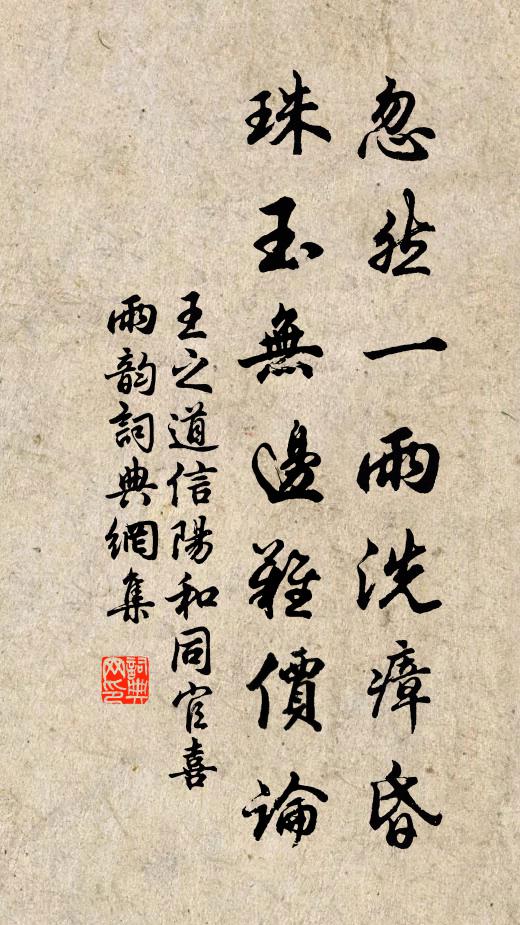 忽然一雨洗瘴昏
珠玉無邊難價論
王之道信陽和同官喜
雨韵詞典網集
詞典網印